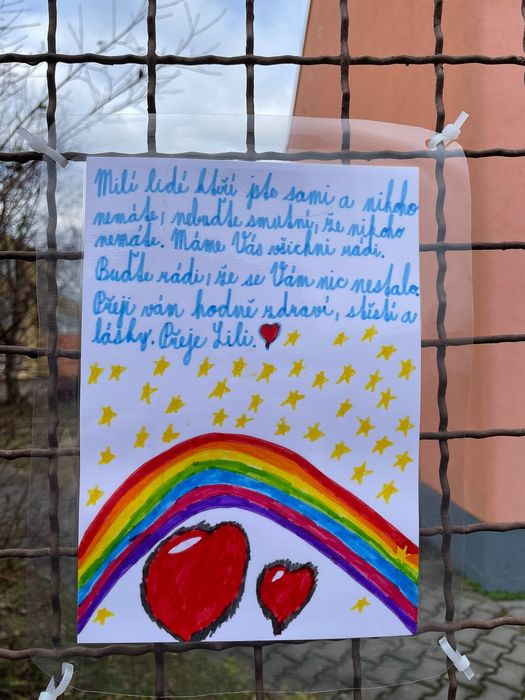 Milí lidé kteří jste sami a nikoho
nemáte, nebuďte smutný, že nikoho
nemáte. Máme Vás všichni rádi.
Buďte rádi, že se Vám nic nestalo.
Přeji vám hodně zdraví, stěstí a
lásky. Přeje Lili.